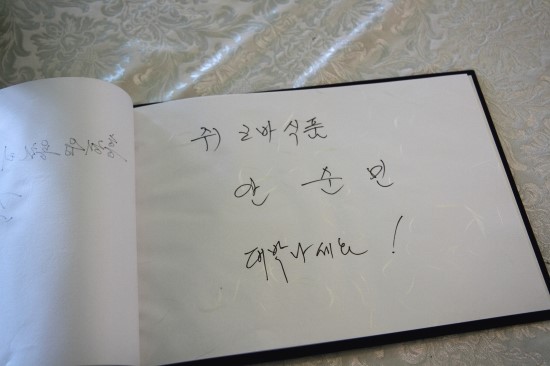 주) 로바식품
안 순 민
대박나세요!